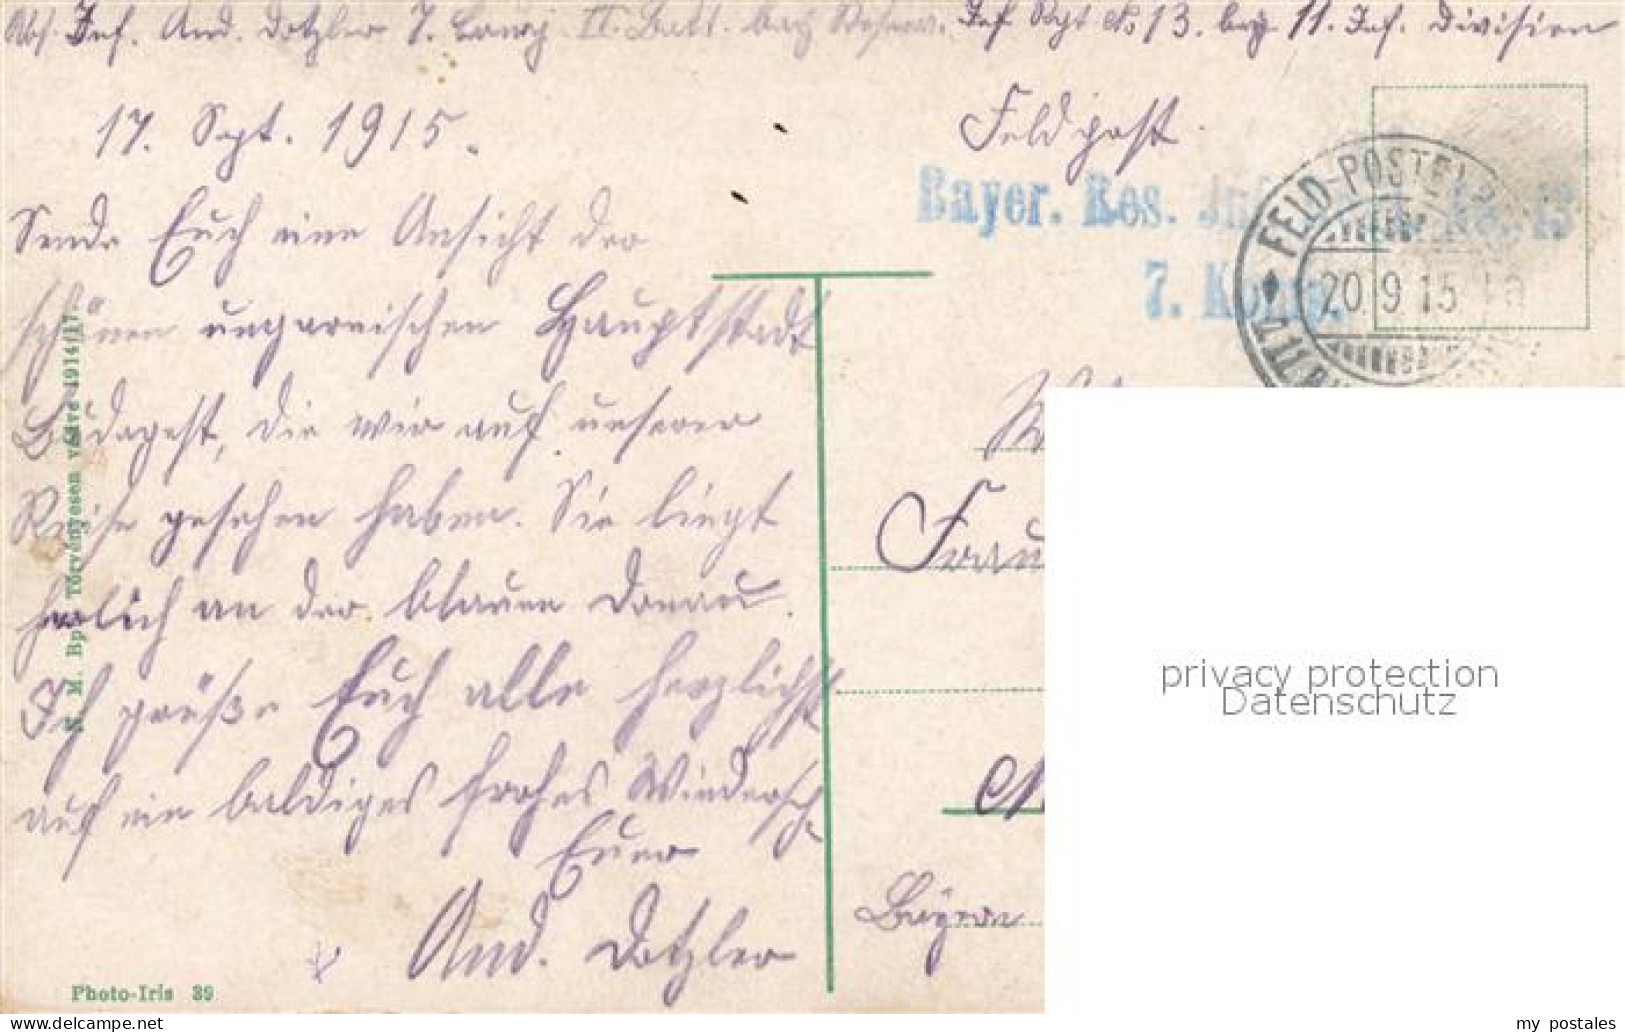 Abs. Inf. And. Dotzler 7. Comp. II. Batt. bay Reserv. Inf Rgt No 13. bay. 11. Inf. Division
17. Sept. 1915.
Sende Euch eine Ansicht der
schönen ungarnischen Hauptstadt
Budapest, die wir auf unserer
Reise gesehen haben. Sie liegt
herlich an der blauen Donau.
Ich grüße Euch alle herzlichst
auf ein baldiges frohes Wiederseh.
Euer
And. Dotzler
Feldpost.
Bayer. Res. Inf. 13
7. Komp.
FELD-POSTEXP
20.9 15
Frau
Bayern
M. M. Bp. Törvényesen védve 1914/17.
Photo-Iris 39
privacy protection
Datenschutz
my postales